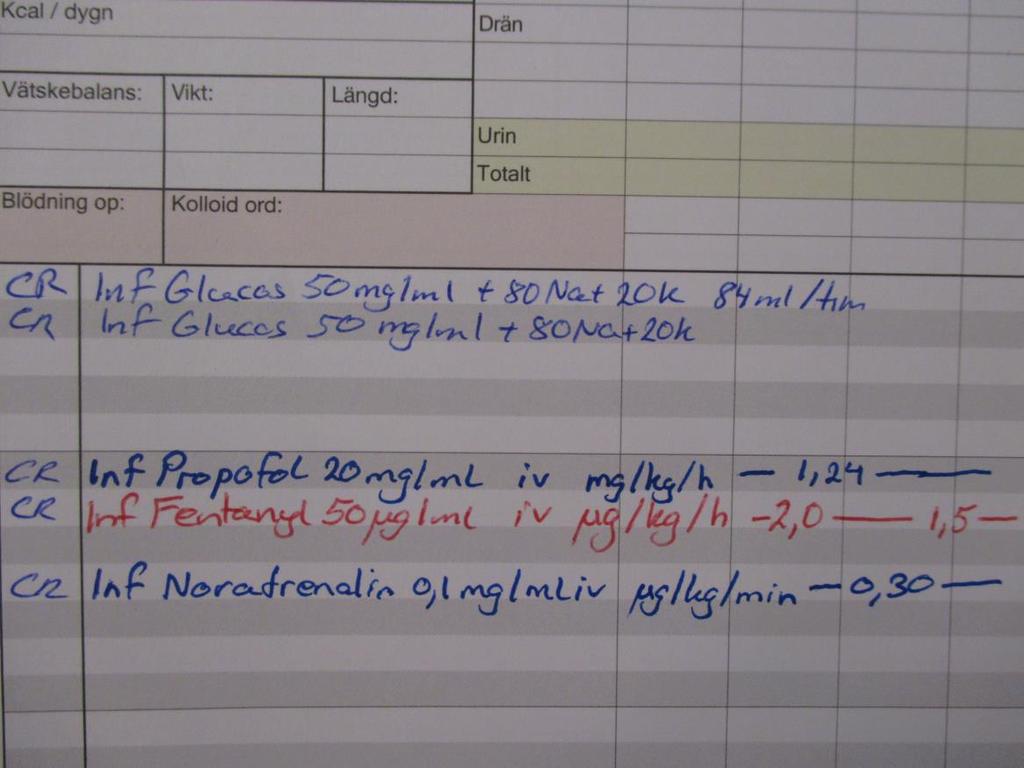 Kcal / dygn
Drän
Vätskebalans: Vikt: Längd:
Urin
Totalt
Blödning op: Kolloid ord:
CR Inf Glucos 50 mg/ml + 80 Na + 20 K 84 ml/tim
CR Inf Glucos 50 mg/ml + 80 Na + 20 K
CR Inf Propofol 20 mg/mL iv mg/kg/h – 1,24 —
CR Inf Fentanyl 50 µg/ml iv µg/kg/h – 2,0 — 1,5 —
CR Inf Noradrenalin 0,1 mg/mL iv µg/kg/min – 0,30 —